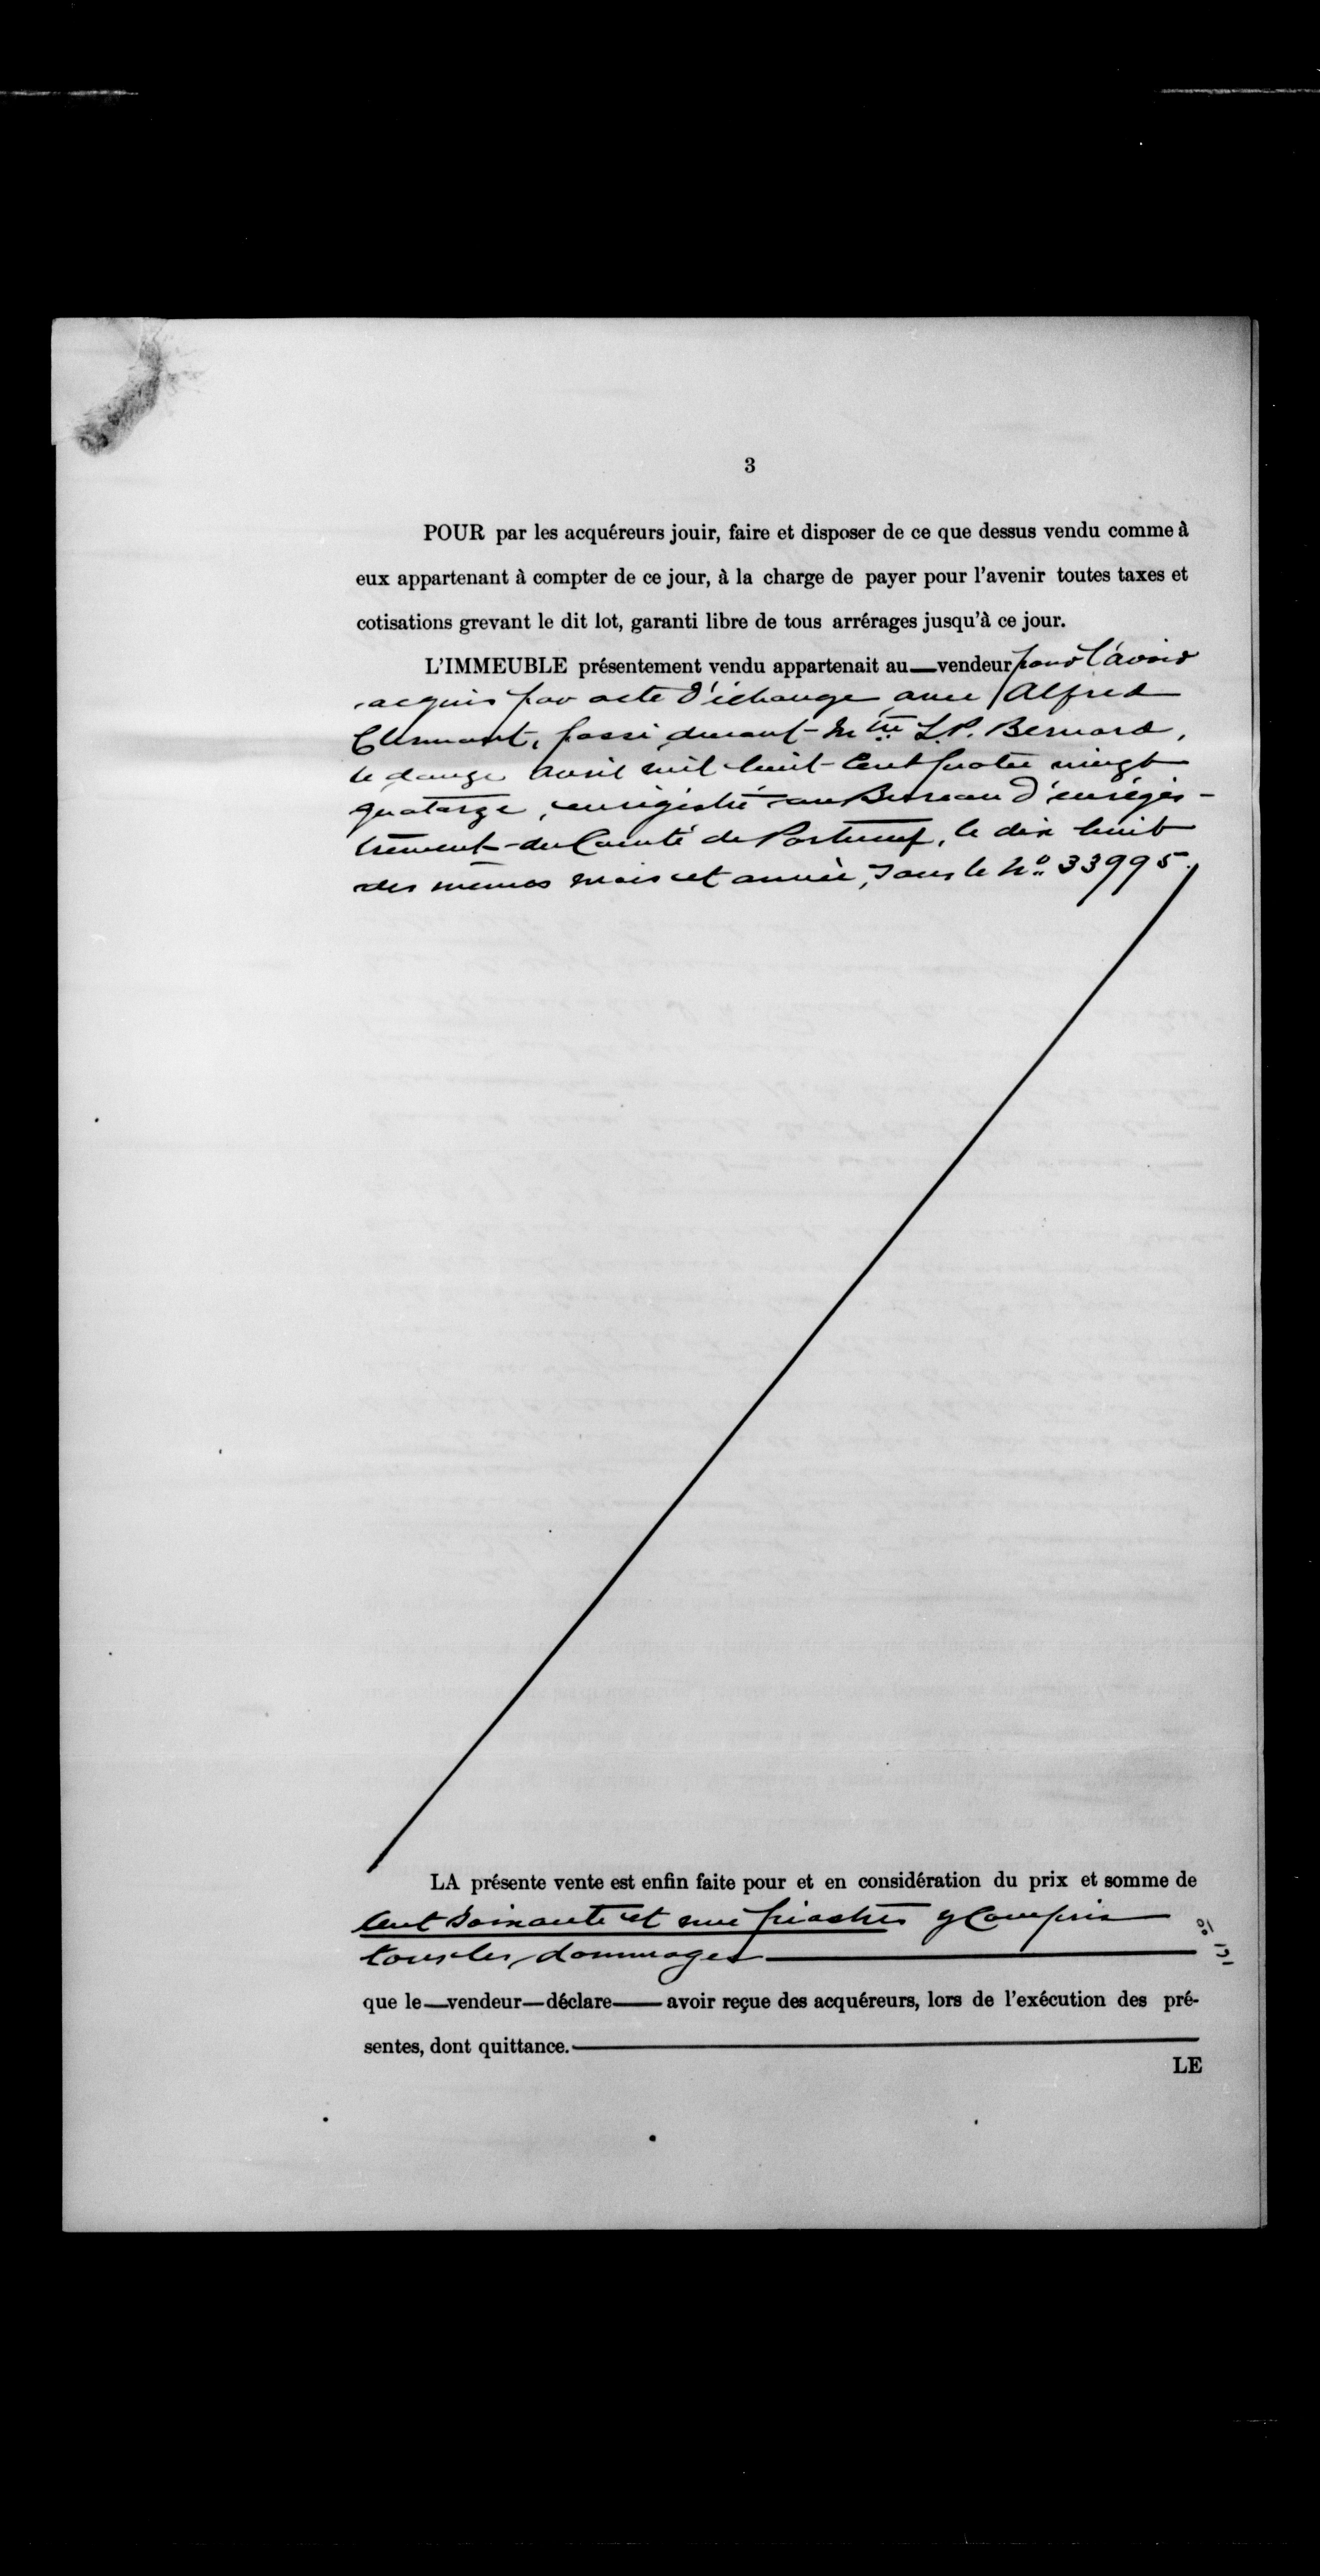 3
POUR par les acquéreurs jouir, faire et disposer de ce que dessus vendu comme à
eux appartenant à compter de ce jour, à la charge de payer pour l'avenir toutes taxes et
cotisations grevant le dit lot, garanti libre de tous arrérages jusqu'à ce jour.
L'IMMEUBLE présentement vendu appartenait au—vendeur pour l'avoir
acquis par acte d'échange avec Alfred
passé devant Mtre L.P. Bernard,
le douze avril mil huit-cent quatre vingt
quatorze, enrégistré au Bureau d'enrégis-
trement du Comté de Portneuf, le dix huit
des mêmes mois et année, sous le No. 33995.
LA présente vente est enfin faite pour et en considération du prix et somme de
Cent soixante et une piastres y compris
tous les dommages
que le—vendeur—déclare—avoir reçue des acquéreurs, lors de l'exécution des pré-
sentes, dont quittance.
LE